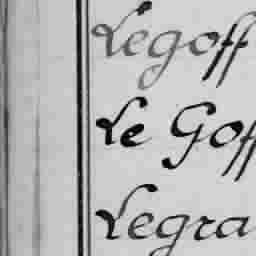 Legoff
Le Goff
Legra